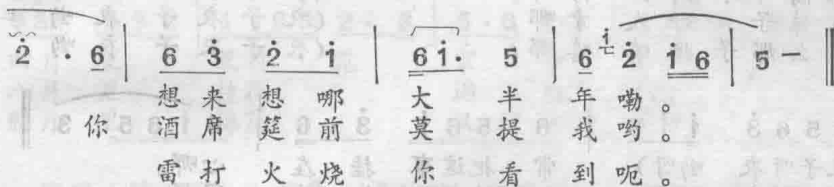 2 · 6 | 6 3 2 i | 6 i· 5 | 6 i 2 i 6 | 5 —
想来想哪大半年嘞。
你酒席筵前莫提我哟。
雷打火烧你看到呃。